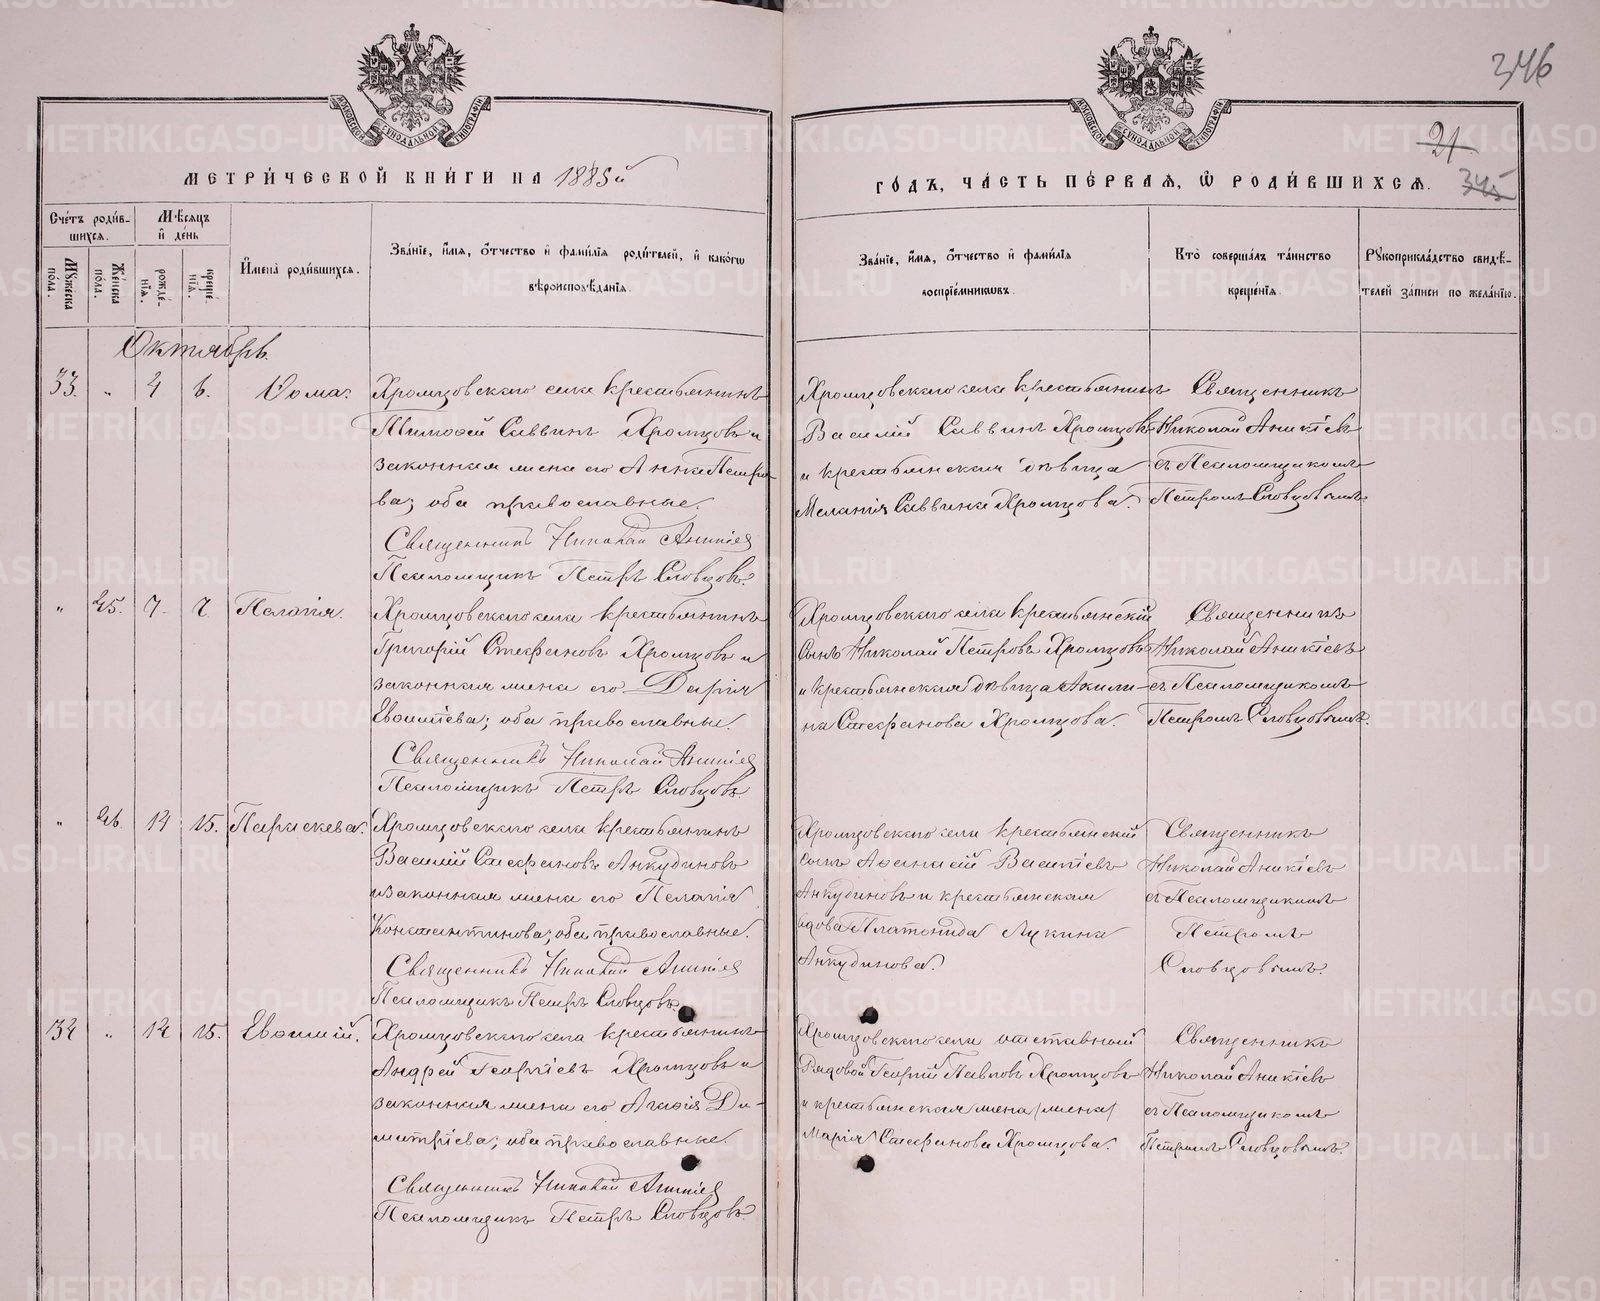 346
21
345
МЕТРИ́ЧЕСКОЙ КНИ́ГИ НА 1885й
ГО́ДЪ, ЧА́СТЬ ПЕ́РВАЯ, Ѡ РОДИ́ВШИХСЯ.
Сче́тъ роди́вшихся.
Мѣ́сяцъ и де́нь
Имена̀ роди́вшихся.
Зва́нїе, и́мя, о́тчество и фами́лїя роди́телей, и како́гѡ
вѣроисповѣ́данїя.
Зва́нїе, и́мя, о́тчество и фами́лїя
воспрїе́мникѡвъ.
Кто̀ соверша́лъ та́инство
креще́нїя.
Рꙋкоприкла́дство свидѣ́-
телей за́писи по жела́нїю.
Мꙋ́жеска по́ла.
Же́нска по́ла.
рожде́нїя.
креще́нїя.
Октябрь.
33. „ 4 6. Ѳома.
Хромцовскаго села крестьянинъ
Тимоѳей Саввинъ Хромцовъ и
законная жена его Анна Петро-
ва; оба православные.
Священникъ Николай Аникіев
Псаломщикъ Петръ Словцовъ.
Хромцовскаго села крестьянинъ
Василій Саввинъ Хромцовъ
и крестьянская дѣвица
Меланія Саввина Хромцова.
Священникъ
Николай Аникіевъ
съ Псаломщикомъ
Петромъ Словцовымъ.
„ 25. 7. 7. Пелагія.
Хромцовскаго села крестьянинъ
Григорій Стефановъ Хромцовъ и
законная жена его Дарія
Евѳиміева; оба православные.
Священникъ Николай Аникіев
Псаломщикъ Петръ Словцовъ.
Хромцовскаго села крестьянскій
сынъ Николай Петровъ Хромцовъ
и крестьянская дѣвица Акили-
на Стефанова Хромцова.
Священникъ
Николай Аникіевъ
съ Псаломщикомъ
Петромъ Словцовымъ.
„ 26. 14 15. Параскева.
Хромцовскаго села крестьянинъ
Василій Стефановъ Анкудиновъ
и законная жена его Пелагія
Константинова; оба православные.
Священникъ Николай Аникіев
Псаломщикъ Петръ Словцовъ.
Хромцовскаго села крестьянскій
сынъ Аѳанасій Васильевъ
Анкудиновъ и крестьянская
вдова Платонида Лукина
Анкудинова.
Священникъ
Николай Аникіевъ
съ Псаломщикомъ
Петромъ
Словцовымъ.
34 „ 14 15. Евѳимій.
Хромцовскаго села крестьянинъ
Андрей Георгіевъ Хромцовъ и
законная жена его Агаѳія Ди-
митріева; оба православные.
Священникъ Николай Аникіев
Псаломщикъ Петръ Словцовъ.
Хромцовскаго села отставный
Рядовой Георгій Павловъ Хромцовъ
и крестьянская жена /жена/
Марія Стефанова Хромцова.
Священникъ
Николай Аникіевъ
съ Псаломщикомъ
Петромъ Словцовымъ.
METRIKI.GASO-URAL.RU